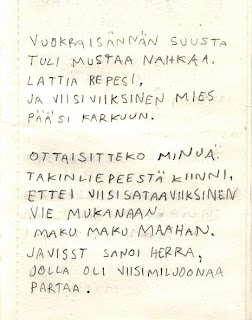 VUOKRAISÄNNÄN SUUSTA
TULI MUSTAA NAHKAA.
LATTIA REPESI,
JA VIISIVIIKSINEN MIES
PÄÄSI KARKUUN.
OTTAISITTEKO MINUA
TAKINLIEPEESTÄ KIINNI,
ETTEI VIISISATAAVIIKSINEN
VIE MUKANAAN
MAKU MAKU MAAHAN.
JAVISST SANOI HERRA,
JOLLA OLI VIISIMILJOONAA
PARTAA.